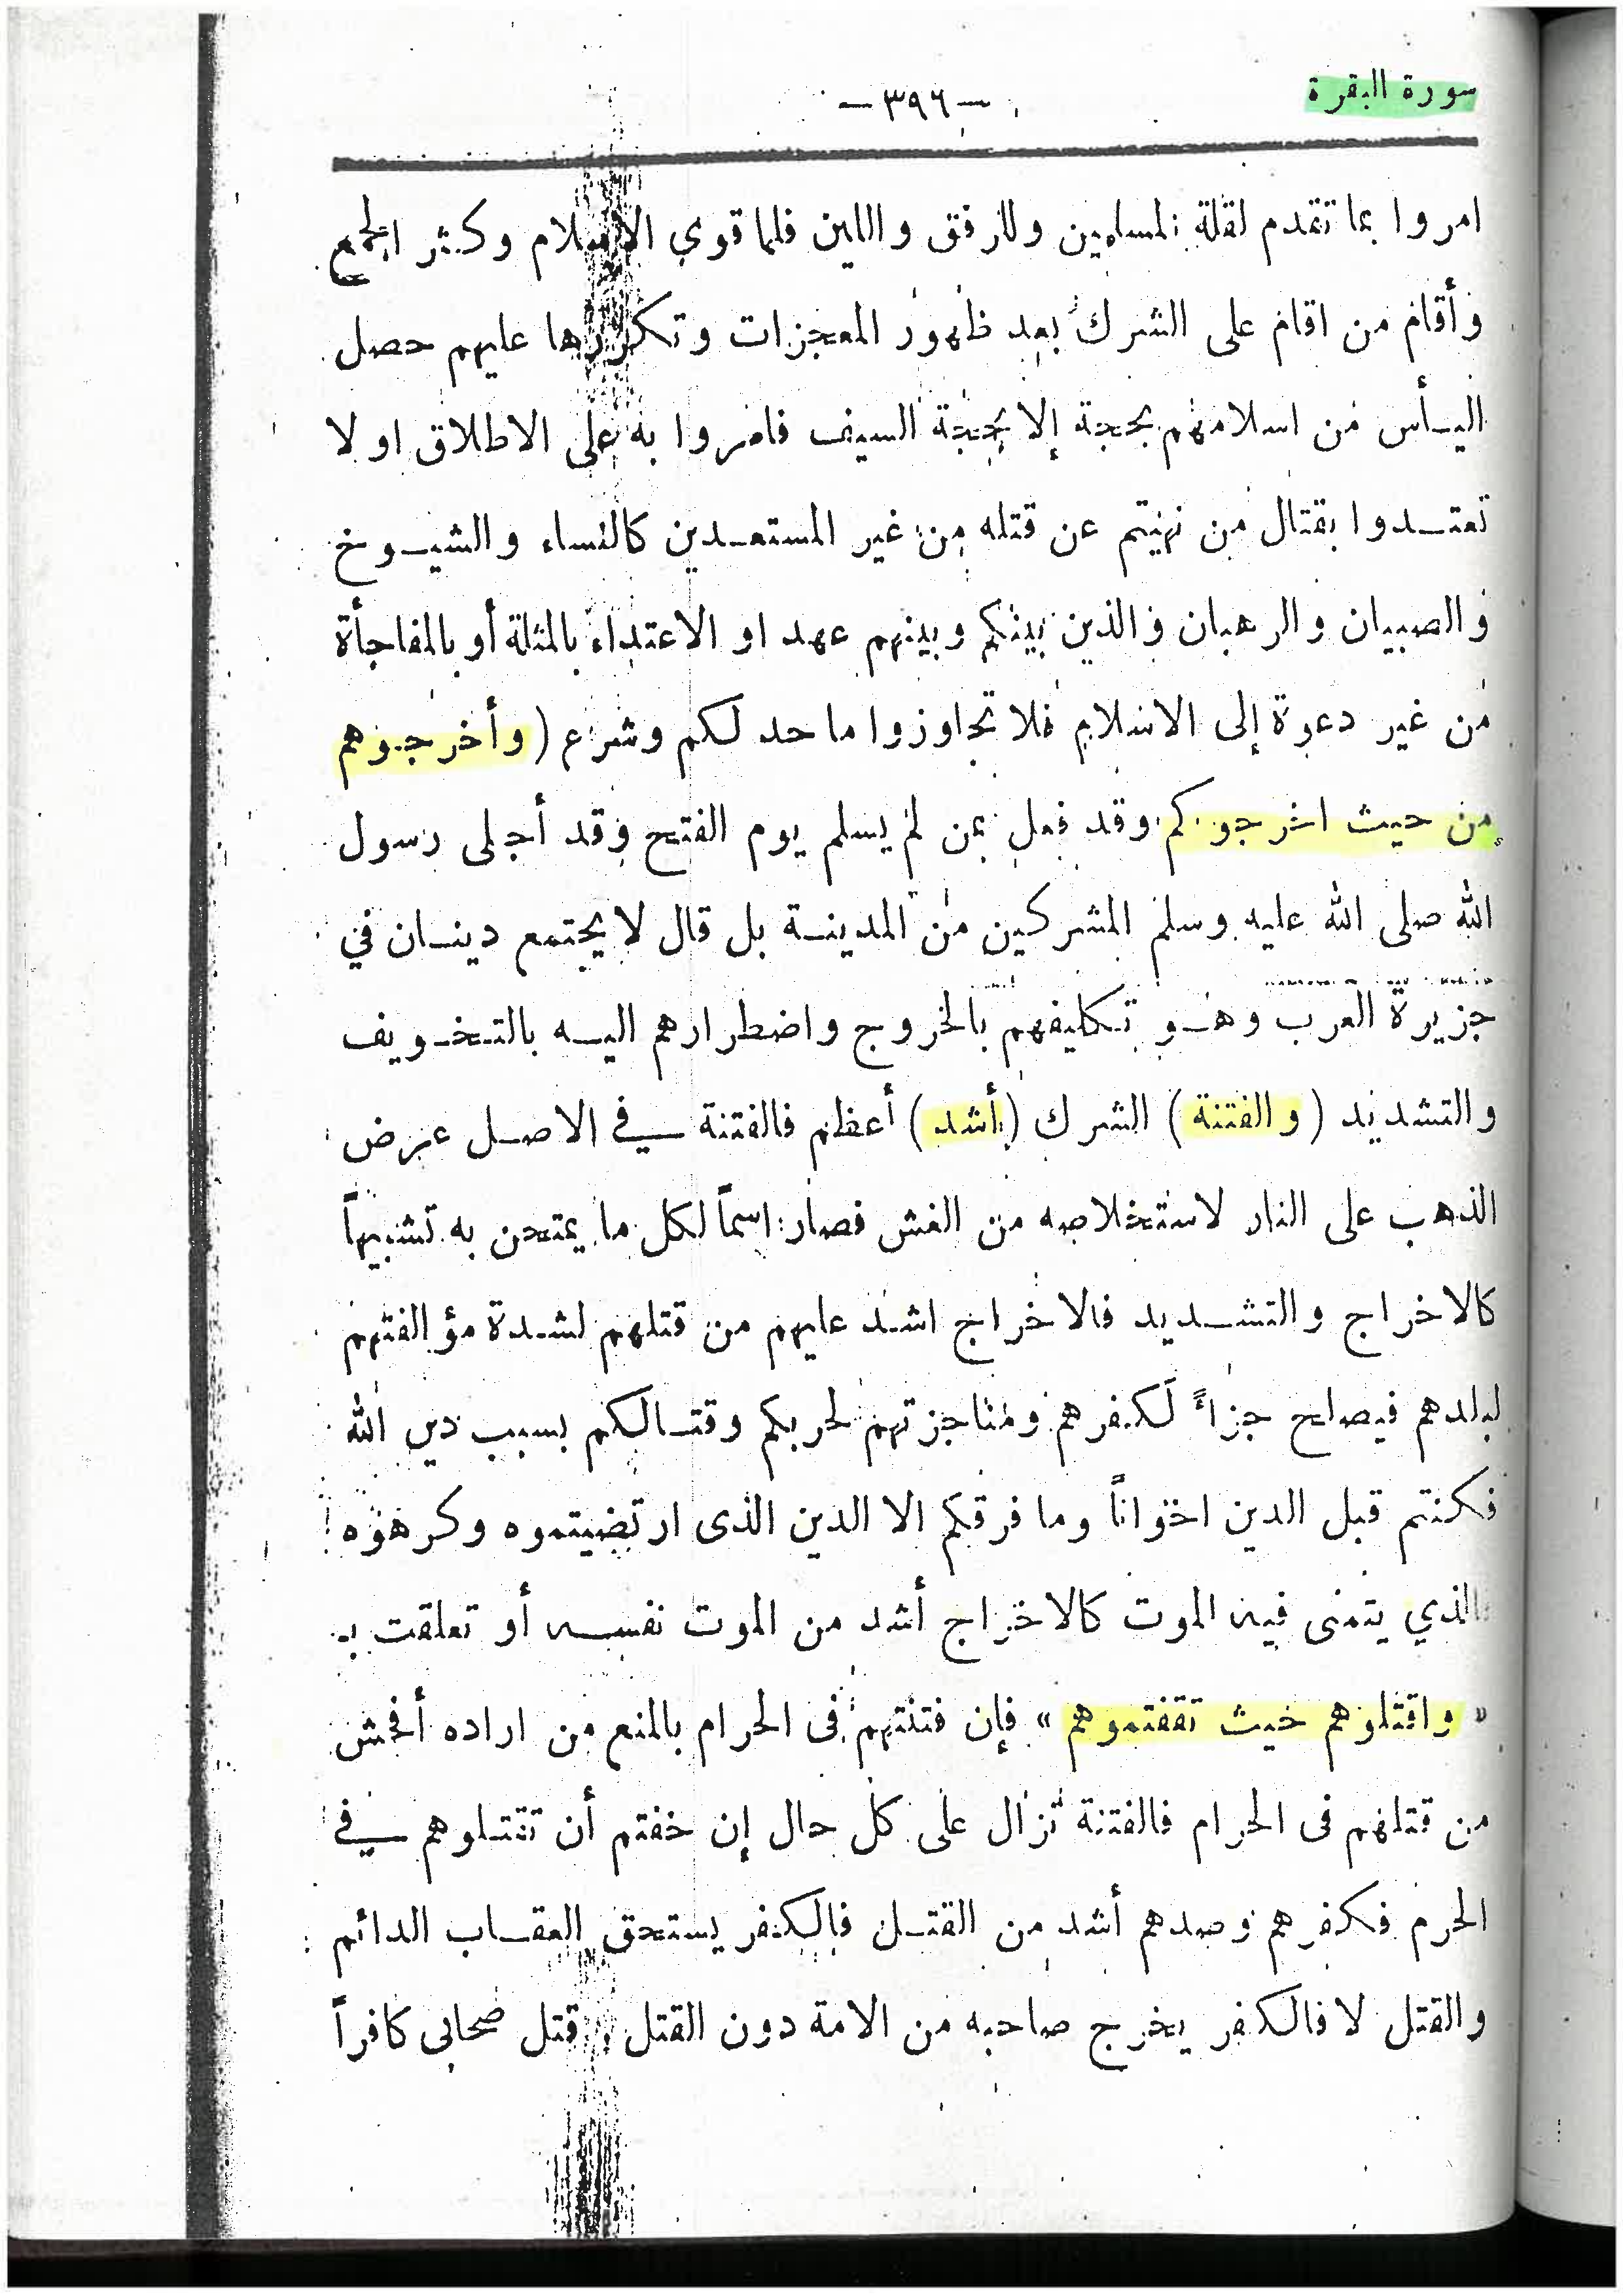 سورة البقرة
—٣٩٦—
امروا بما تقدم لقلة المسلمين وللرفق واللين فلما قوي الاسلام وكثر الجمع
وأقام من اقام على الشرك بعد ظهور المعجزات وتكررها عليهم حصل
اليـأس من اسلامهم بحجة إلا بحجة السيف فامروا به على الاطلاق او لا
تعتـدوا بقتال من نهيتم عن قتله من غير المستعـدين كالنساء والشيـوخ
والصبيان والرهبان والذين بينكم وبينهم عهد او الاعتداء بالمثلة أو بالمفاجأة
من غير دعوة إلى الاسلام فلا تجاوزوا ما حد لكم وشرع (وأخرجوهم
من حيث اخرجوكم وقد فعل بمن لم يسلم يوم الفتح وقد أجلى رسول
الله صلى الله عليه وسلم المشركين من المدينـة بل قال لا يجتمع دينـان في
جزيرة العرب وهـو تكليفهم بالخروج واضطرارهم اليـه بالتخـويف
والتشديد (والفتنة) الشرك (أشد) أعظم فالفتنة في الاصـل عرض
الذهب على النار لاستخلاصه من الغش فصار اسماً لكل ما يمتحن به تشبيهاً
كالاخراج والتشـديد فالاخراج اشد عليهم من قتلهم لشدة مؤالفتهم
لبلدهم فيصلح جزاءً لكفرهم ومناجزتهم لحربكم وقتـالكم بسبب دين الله
فكنتم قبل الدين اخواناً وما فرقكم الا الدين الذى ارتضيتموه وكرهوه
الذي يتمنى فيه الموت كالاخراج أشد من الموت نفسـه أو تعلقت بـ
« واقتلوهم حيث ثقفتموهم » فإن فتنتهم فى الحرام بالمنع من اراده أفحش
من قتلهم فى الحرام فالفتنة تزال على كل حال إن خفتم أن تقتـلوهم في
الحرم فكفرهم وصدهم أشد من القتـل فالكفر يستحق العقـاب الدائم
والقتل لا فالكفر يخرج صاحبه من الامة دون القتل قتل صحابى كافراً